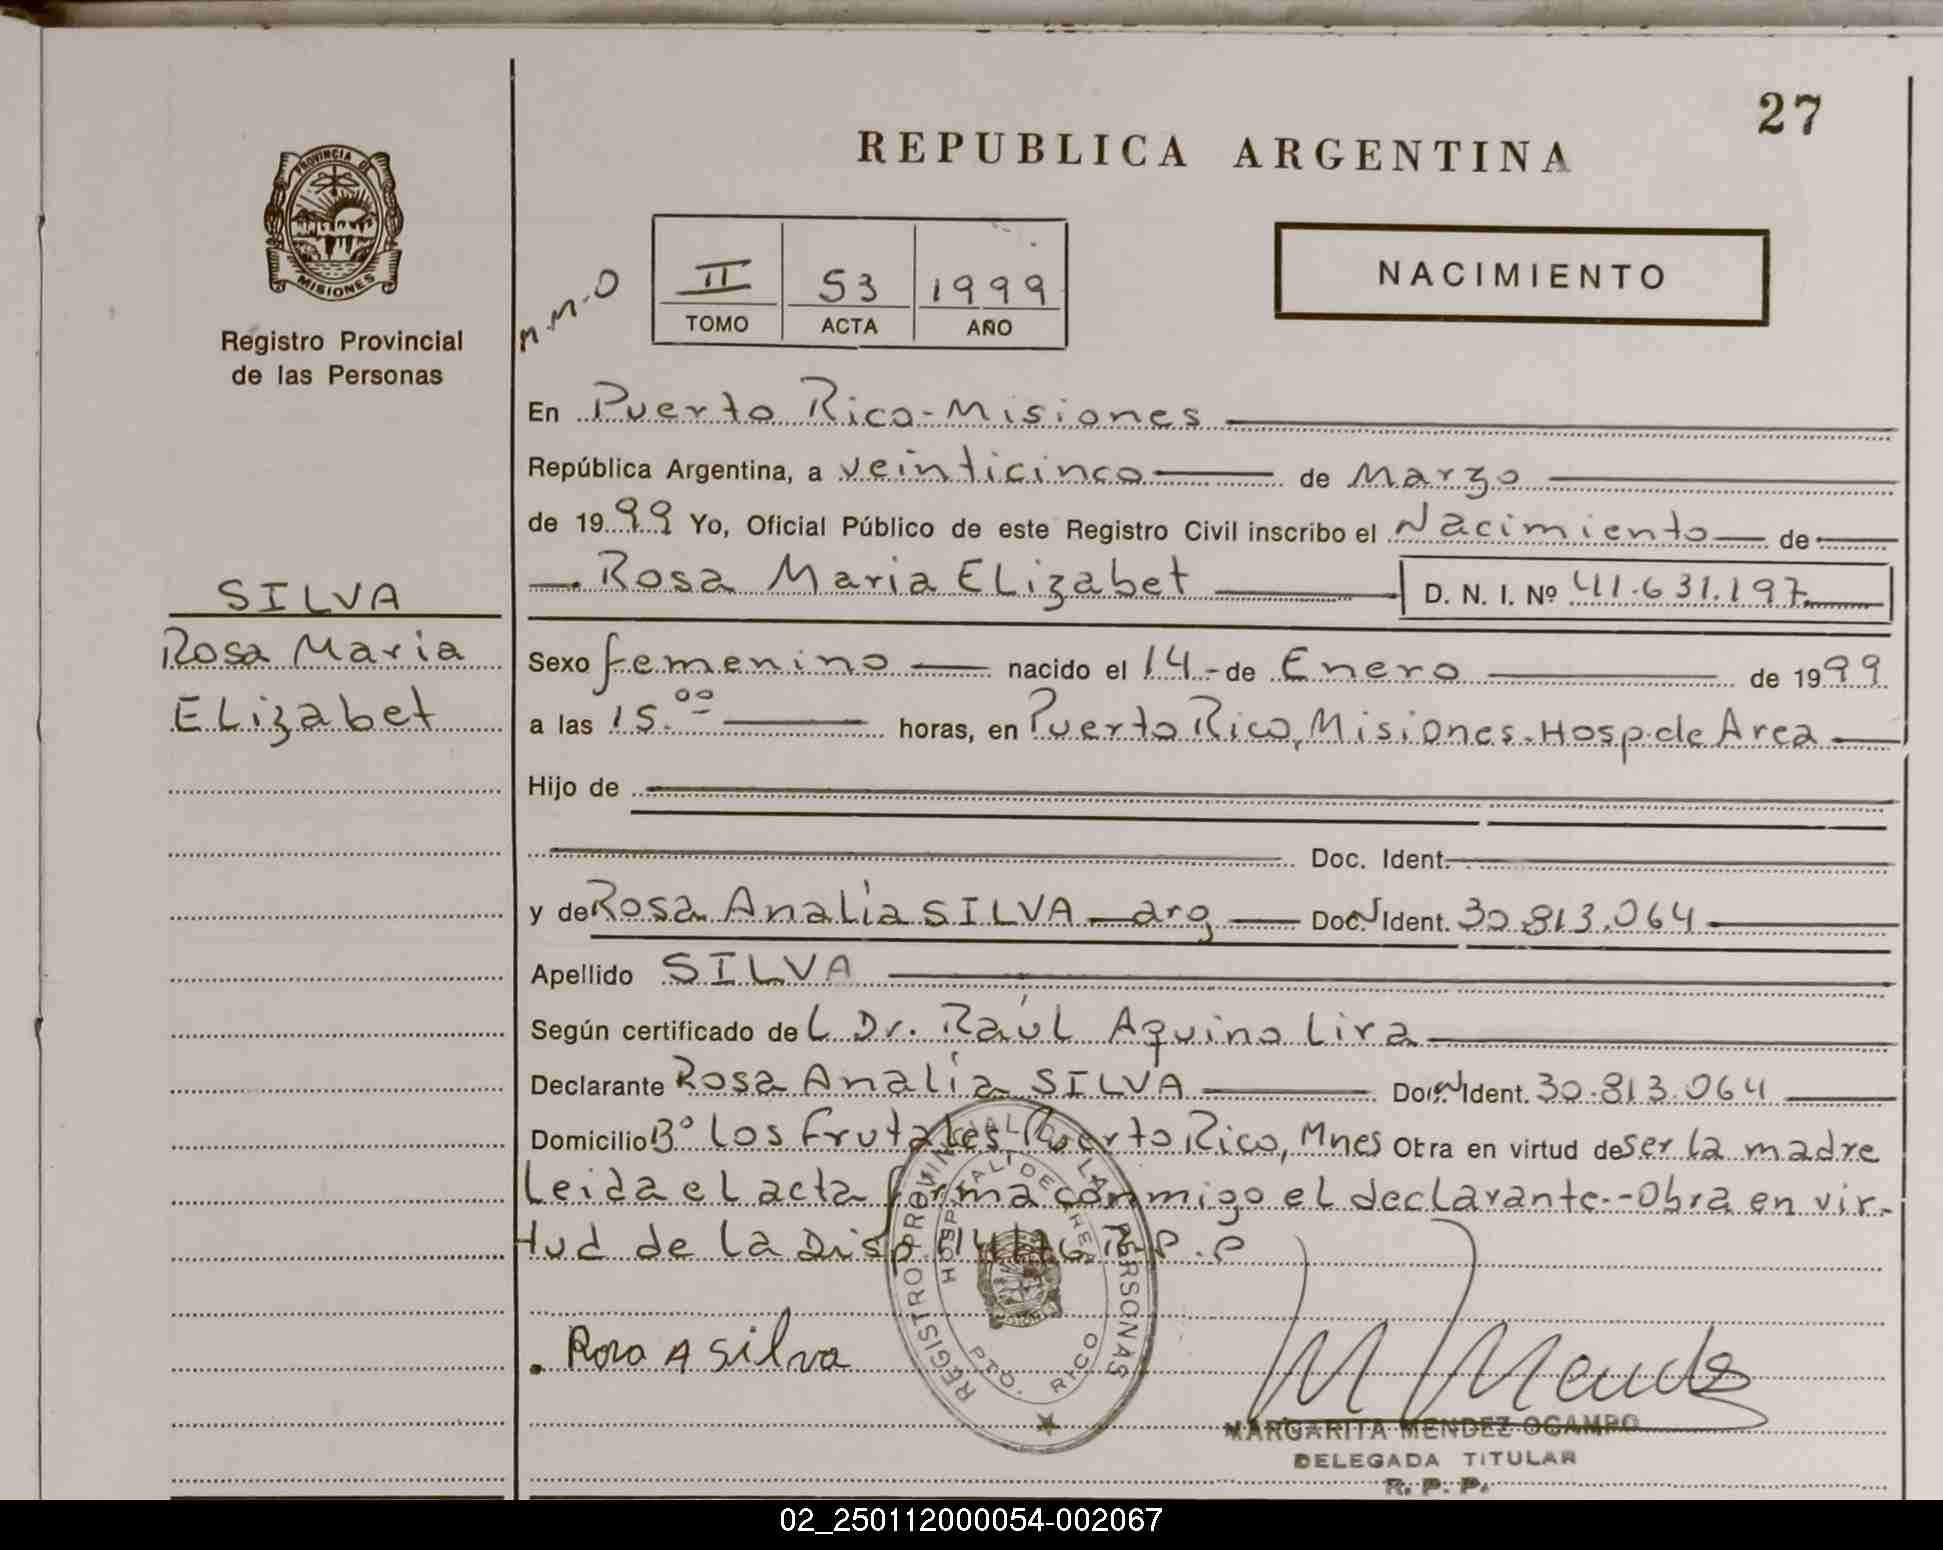 27
REPUBLICA ARGENTINA
PROVINCIA DE
MISIONES
Registro Provincial
de las Personas
M.M.O
II 53 1999
TOMO ACTA AÑO
NACIMIENTO
En Puerto Rico-Misiones
República Argentina, a veinticinco de Marzo
de 1999 Yo, Oficial Público de este Registro Civil inscribo el Nacimiento de
Rosa Maria ELizabet D. N. I. Nº 41.631.197
SILVA
Rosa Maria
ELizabet
Sexo femenino nacido el 14-de Enero de 1999
a las 15.00 horas, en Puerto Rico, Misiones-Hosp.de Area
Hijo de
Doc. Ident.
y de Rosa Analia SILVA arg Doc. N Ident. 30.813.064
Apellido SILVA
Según certificado deL Dr. Raúl Aquino Lira
Declarante Rosa Analia SILVA Doc. N Ident. 30.813.064
Domicilio Bº Los Frutales-Puerto Rico, Mnes Obra en virtud de ser la madre
Leida el acta firma conmigo el declarante.-Obra en vir-
tud de la Disp. R.P.P
REGISTRO PROVINCIAL DE LAS PERSONAS
HOSPITAL DE AREA
PTO. RICO
Rosa A Silva
M Mendez
MARGARITA MENDEZ OCAMPO
DELEGADA TITULAR
R. P. P.
02_250112000054-002067